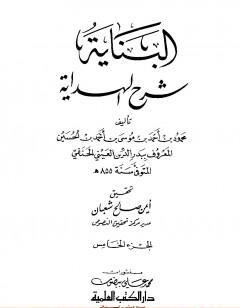 البناية
شرح الهداية
تأليف
محمود بن أحمد بن موسى بن أحمد بن الحسين
المعروف ببدر الدين العيني الحنفي
المتوفى سنة ٨٥٥ هـ
تحقيق
أيمن صالح شعبان
مدير مركز تحقيق النصوص
الجزء الخامس
منشورات
محمد علي بيضون
دار الكتب العلمية